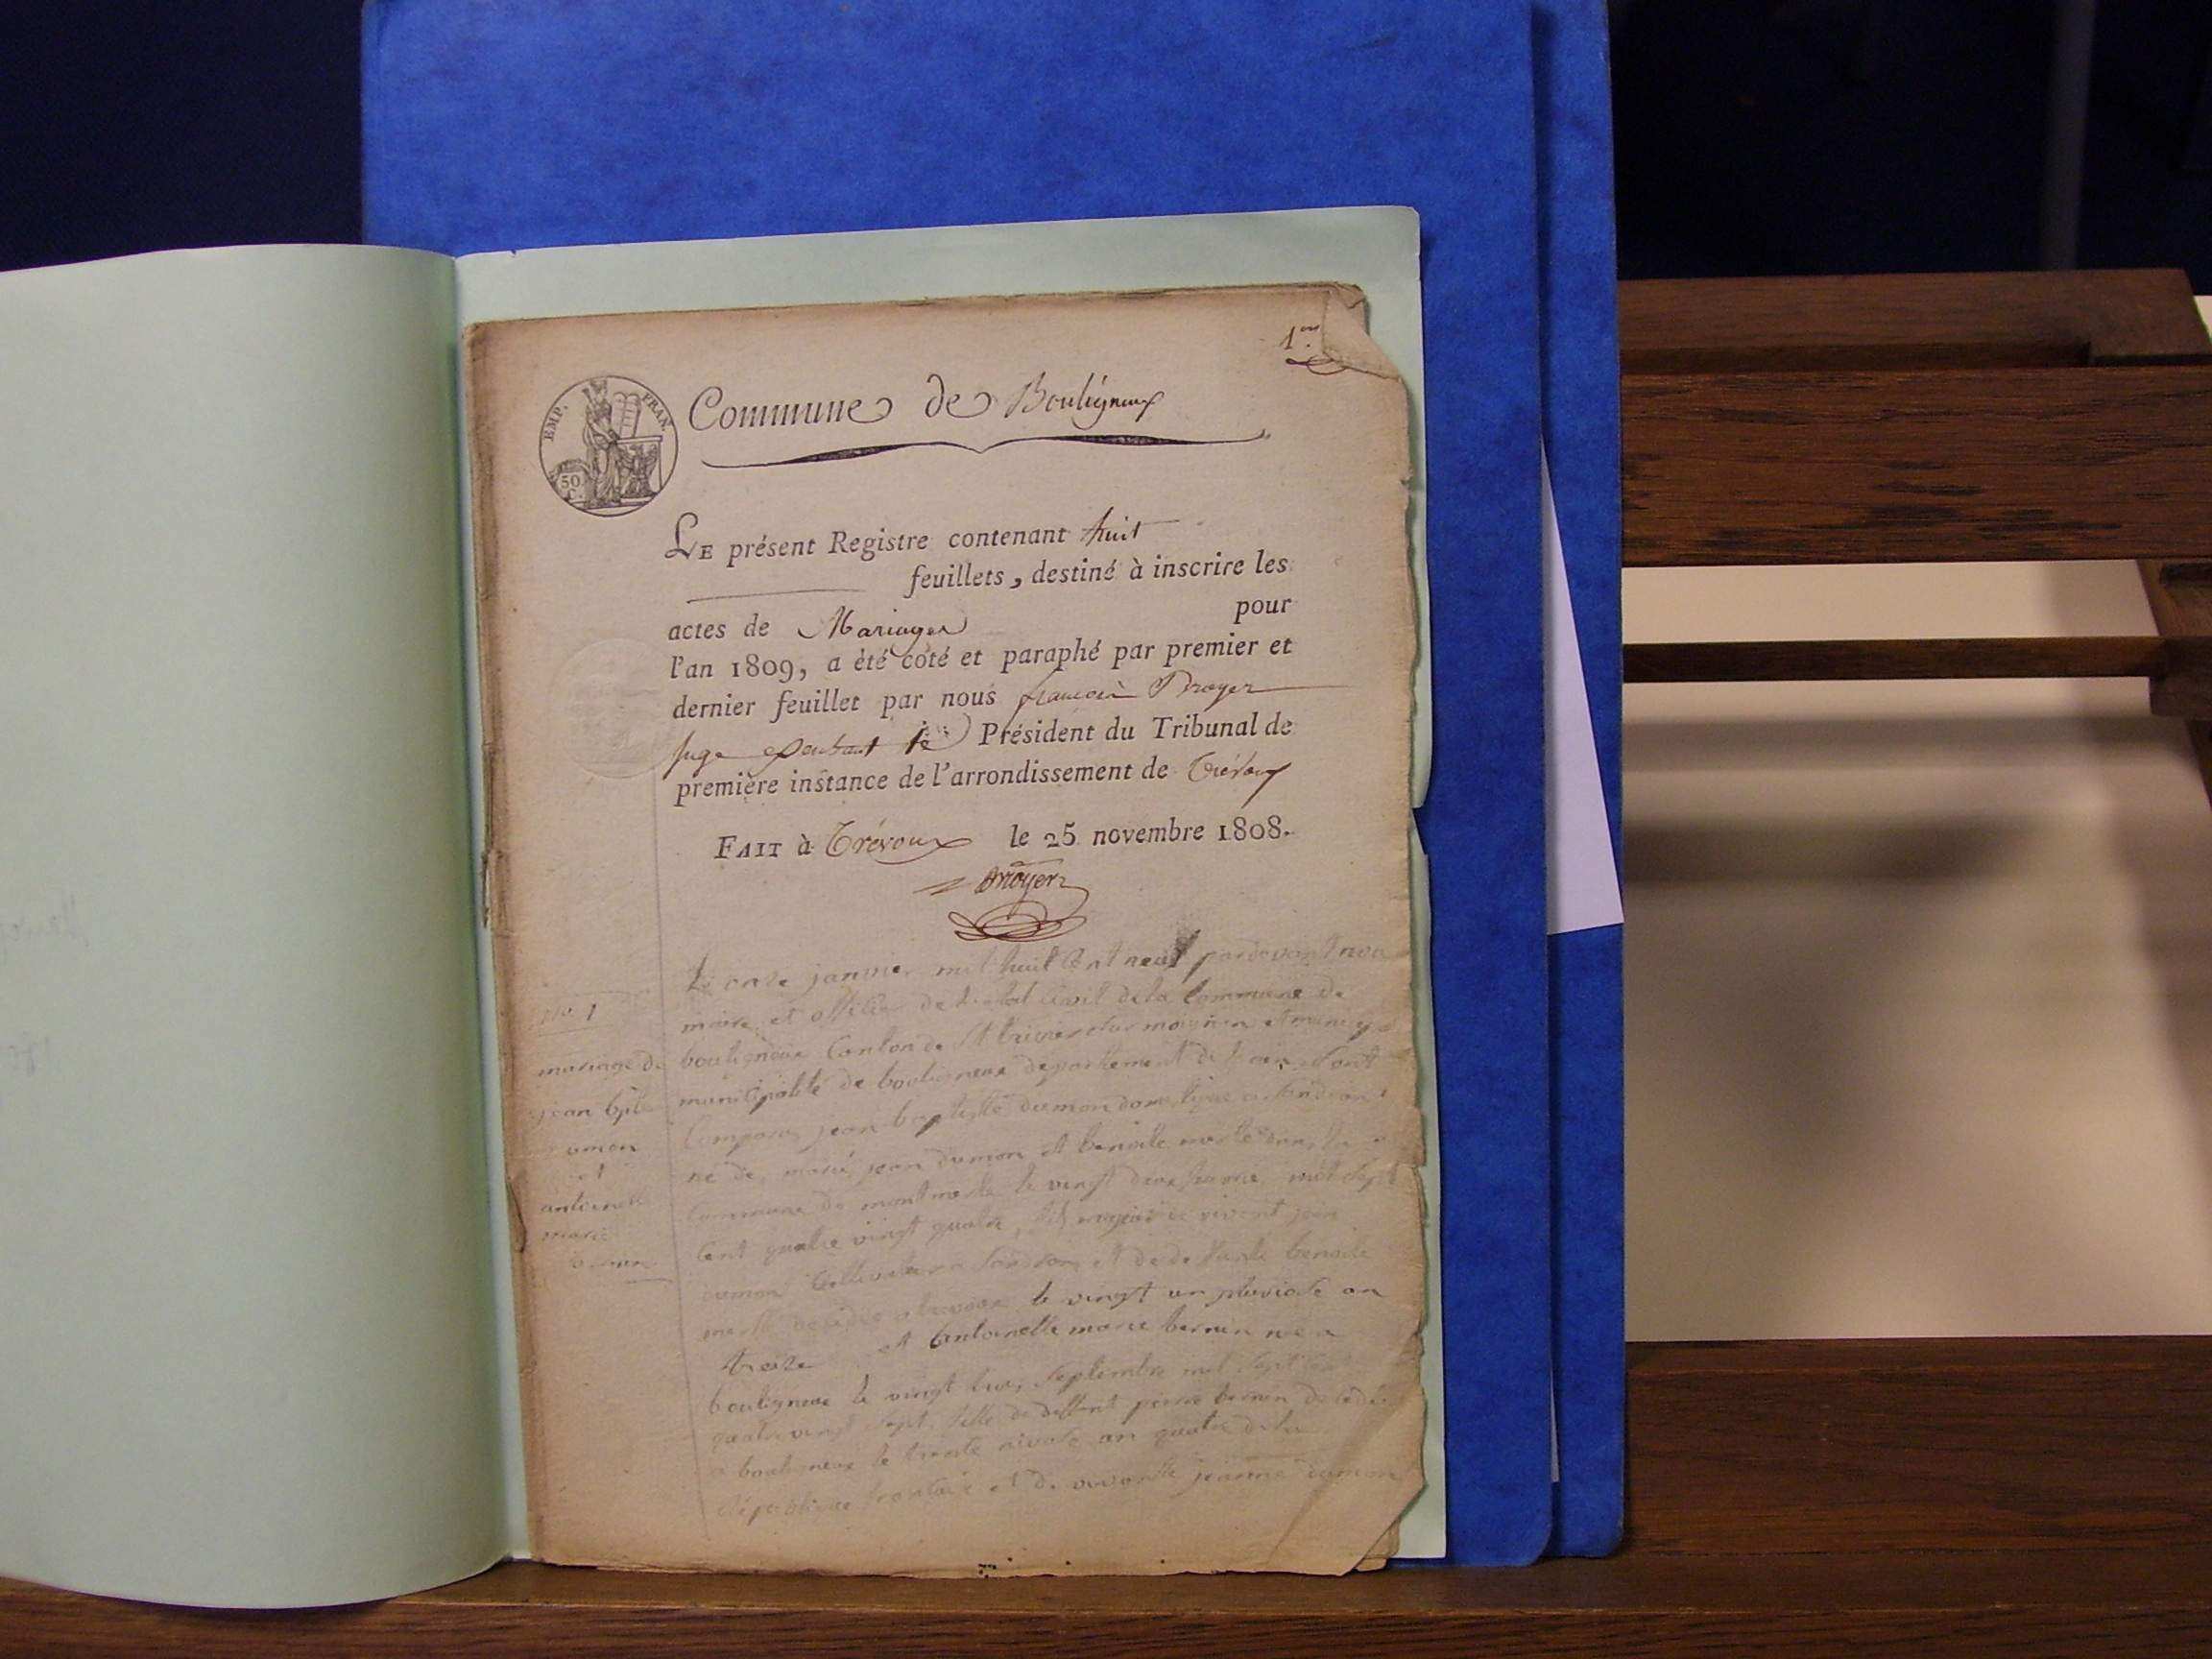 1er
EMP. FRAN.
50 C.
Commune de Bouligneux
LE présent Registre contenant huit
feuillets, destiné à inscrire les
actes de Mariages pour
l'an 1809, a été coté et paraphé par premier et
dernier feuillet par nous françois Broyer
juge Président du Tribunal de
première instance de l'arrondissement de Trévoux
FAIT à Trévoux le 25 novembre 1808.
Broyer
No. 1
mariage de
jean bpte
dumon
et
antoinette
marie
bernin
Le onze janvier mil huit Cent neuf pardevant nou
maire et officier de l'etat Civil de la Commune de
bouligneux Canton de St trivier sur moignan
municipalité de bouligneux departement de l'ain
Comparu jean baptiste dumon domestique a Sandran
né de jean dumon et benoite merle dans la
Commune de montmerle le vingt deux mil sept
Cent quatre vingt quatre, fils majeur de vivant jean
dumon Cultivateur a Sandran et de deffunte benoite
merle decedée le vingt un pluviose an
treize et antoinette marie bernin née a
bouligneux le vingt septembre mil sept Cent
quatre vingt sept, fille de deffunt pierre bernin decedé
a bouligneux le trente nivose an quatre de la
République française et de vivante jeanne dumon